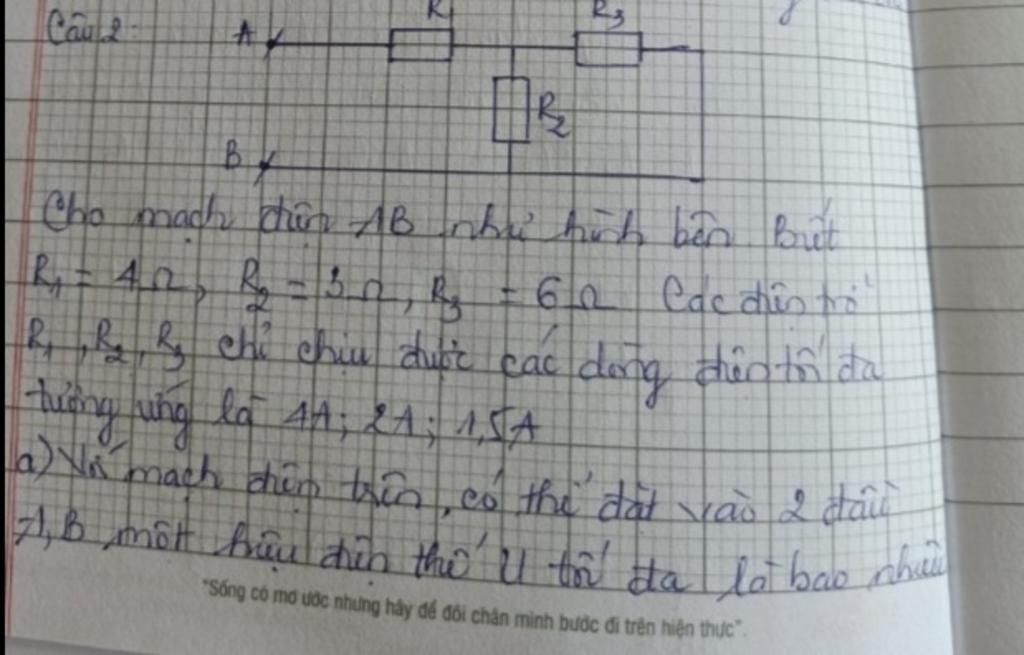 Câu 2:
A
R1
R3
R2
B
Cho mạch điện AB như hình bên Biết
R1 = 4Ω, R2 = 3Ω, R3 = 6Ω Các điện trở
R1, R2, R3 chỉ chịu được các dòng điện tối đa
tương ứng là 4A; 2A; 1,5A
a) Với mạch điện trên, có thể đặt vào 2 đầu
A,B một hiệu điện thế U tối đa là bao nhiêu
"Sống có mơ ước nhưng hãy để đôi chân mình bước đi trên hiện thực".